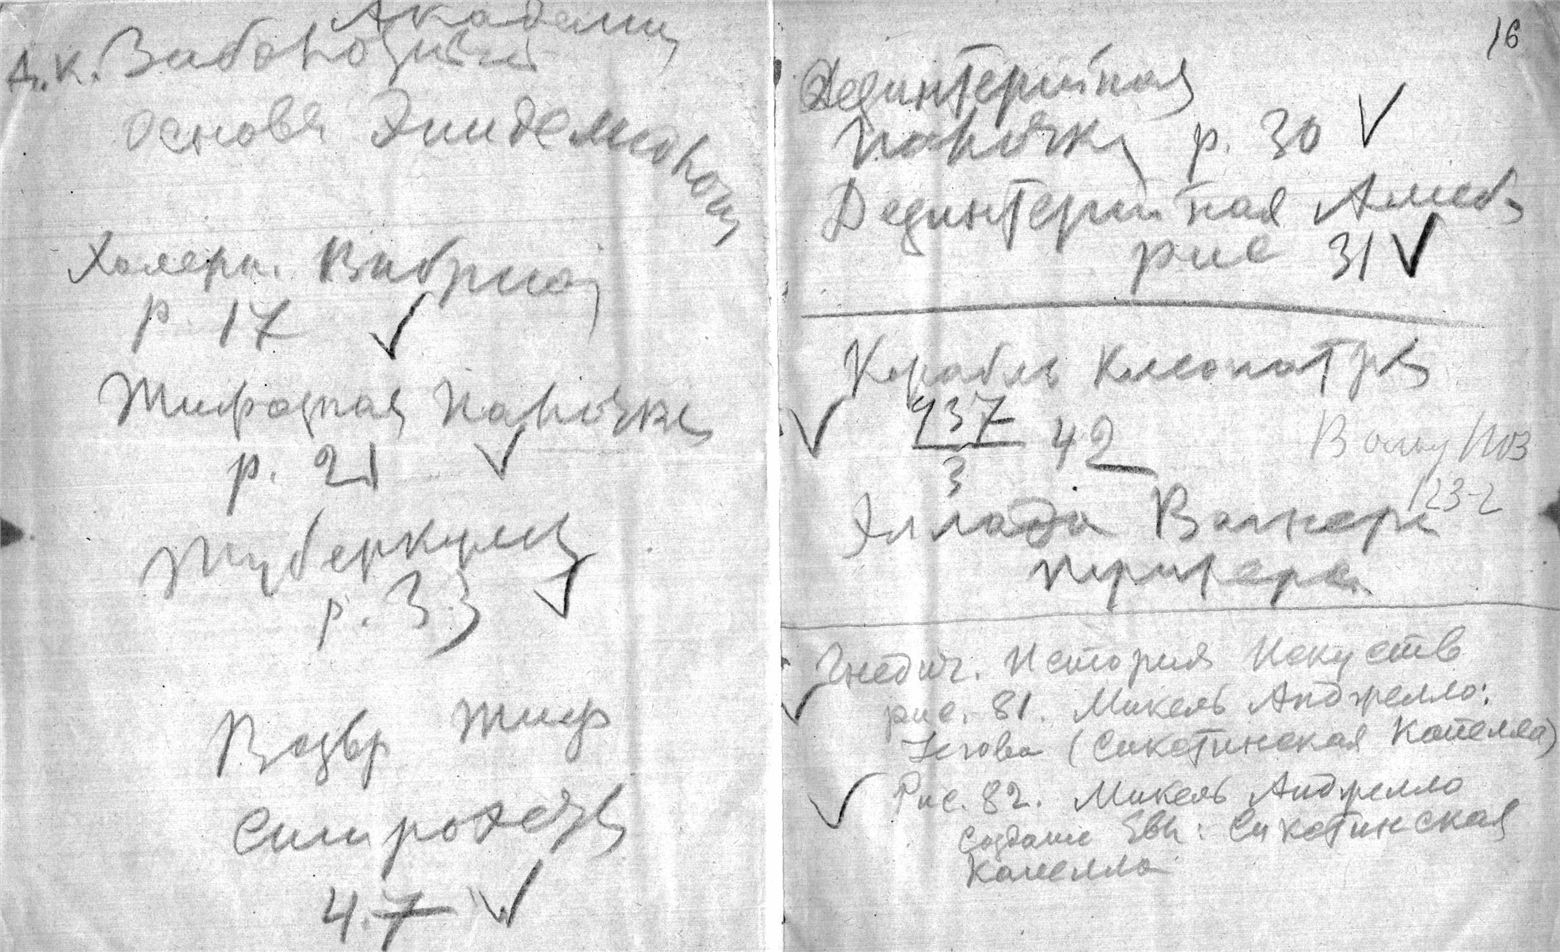 Академик
Д.К. Заболотный
Основы Эпидемиологии
Холерн. Вибрион
р. 17
Тифозная Палочка
р. 21
Туберкулез
р. 33
Возвр Тиф
Спирохеты
47
16
Дезинтерийная
палочка р. 30
Дезинтерийная Амеба
рис 31
Корабль Клеопатры
937
3
42
123-2
Эллада Вагнера
триера
Гнедич. История Искуств
рис. 81. Микель Анджелло:
Иегова (Сикстинская Капелла)
Рис. 82. Микель Анджелло
Создание Евы: Сикстинская
Капелла